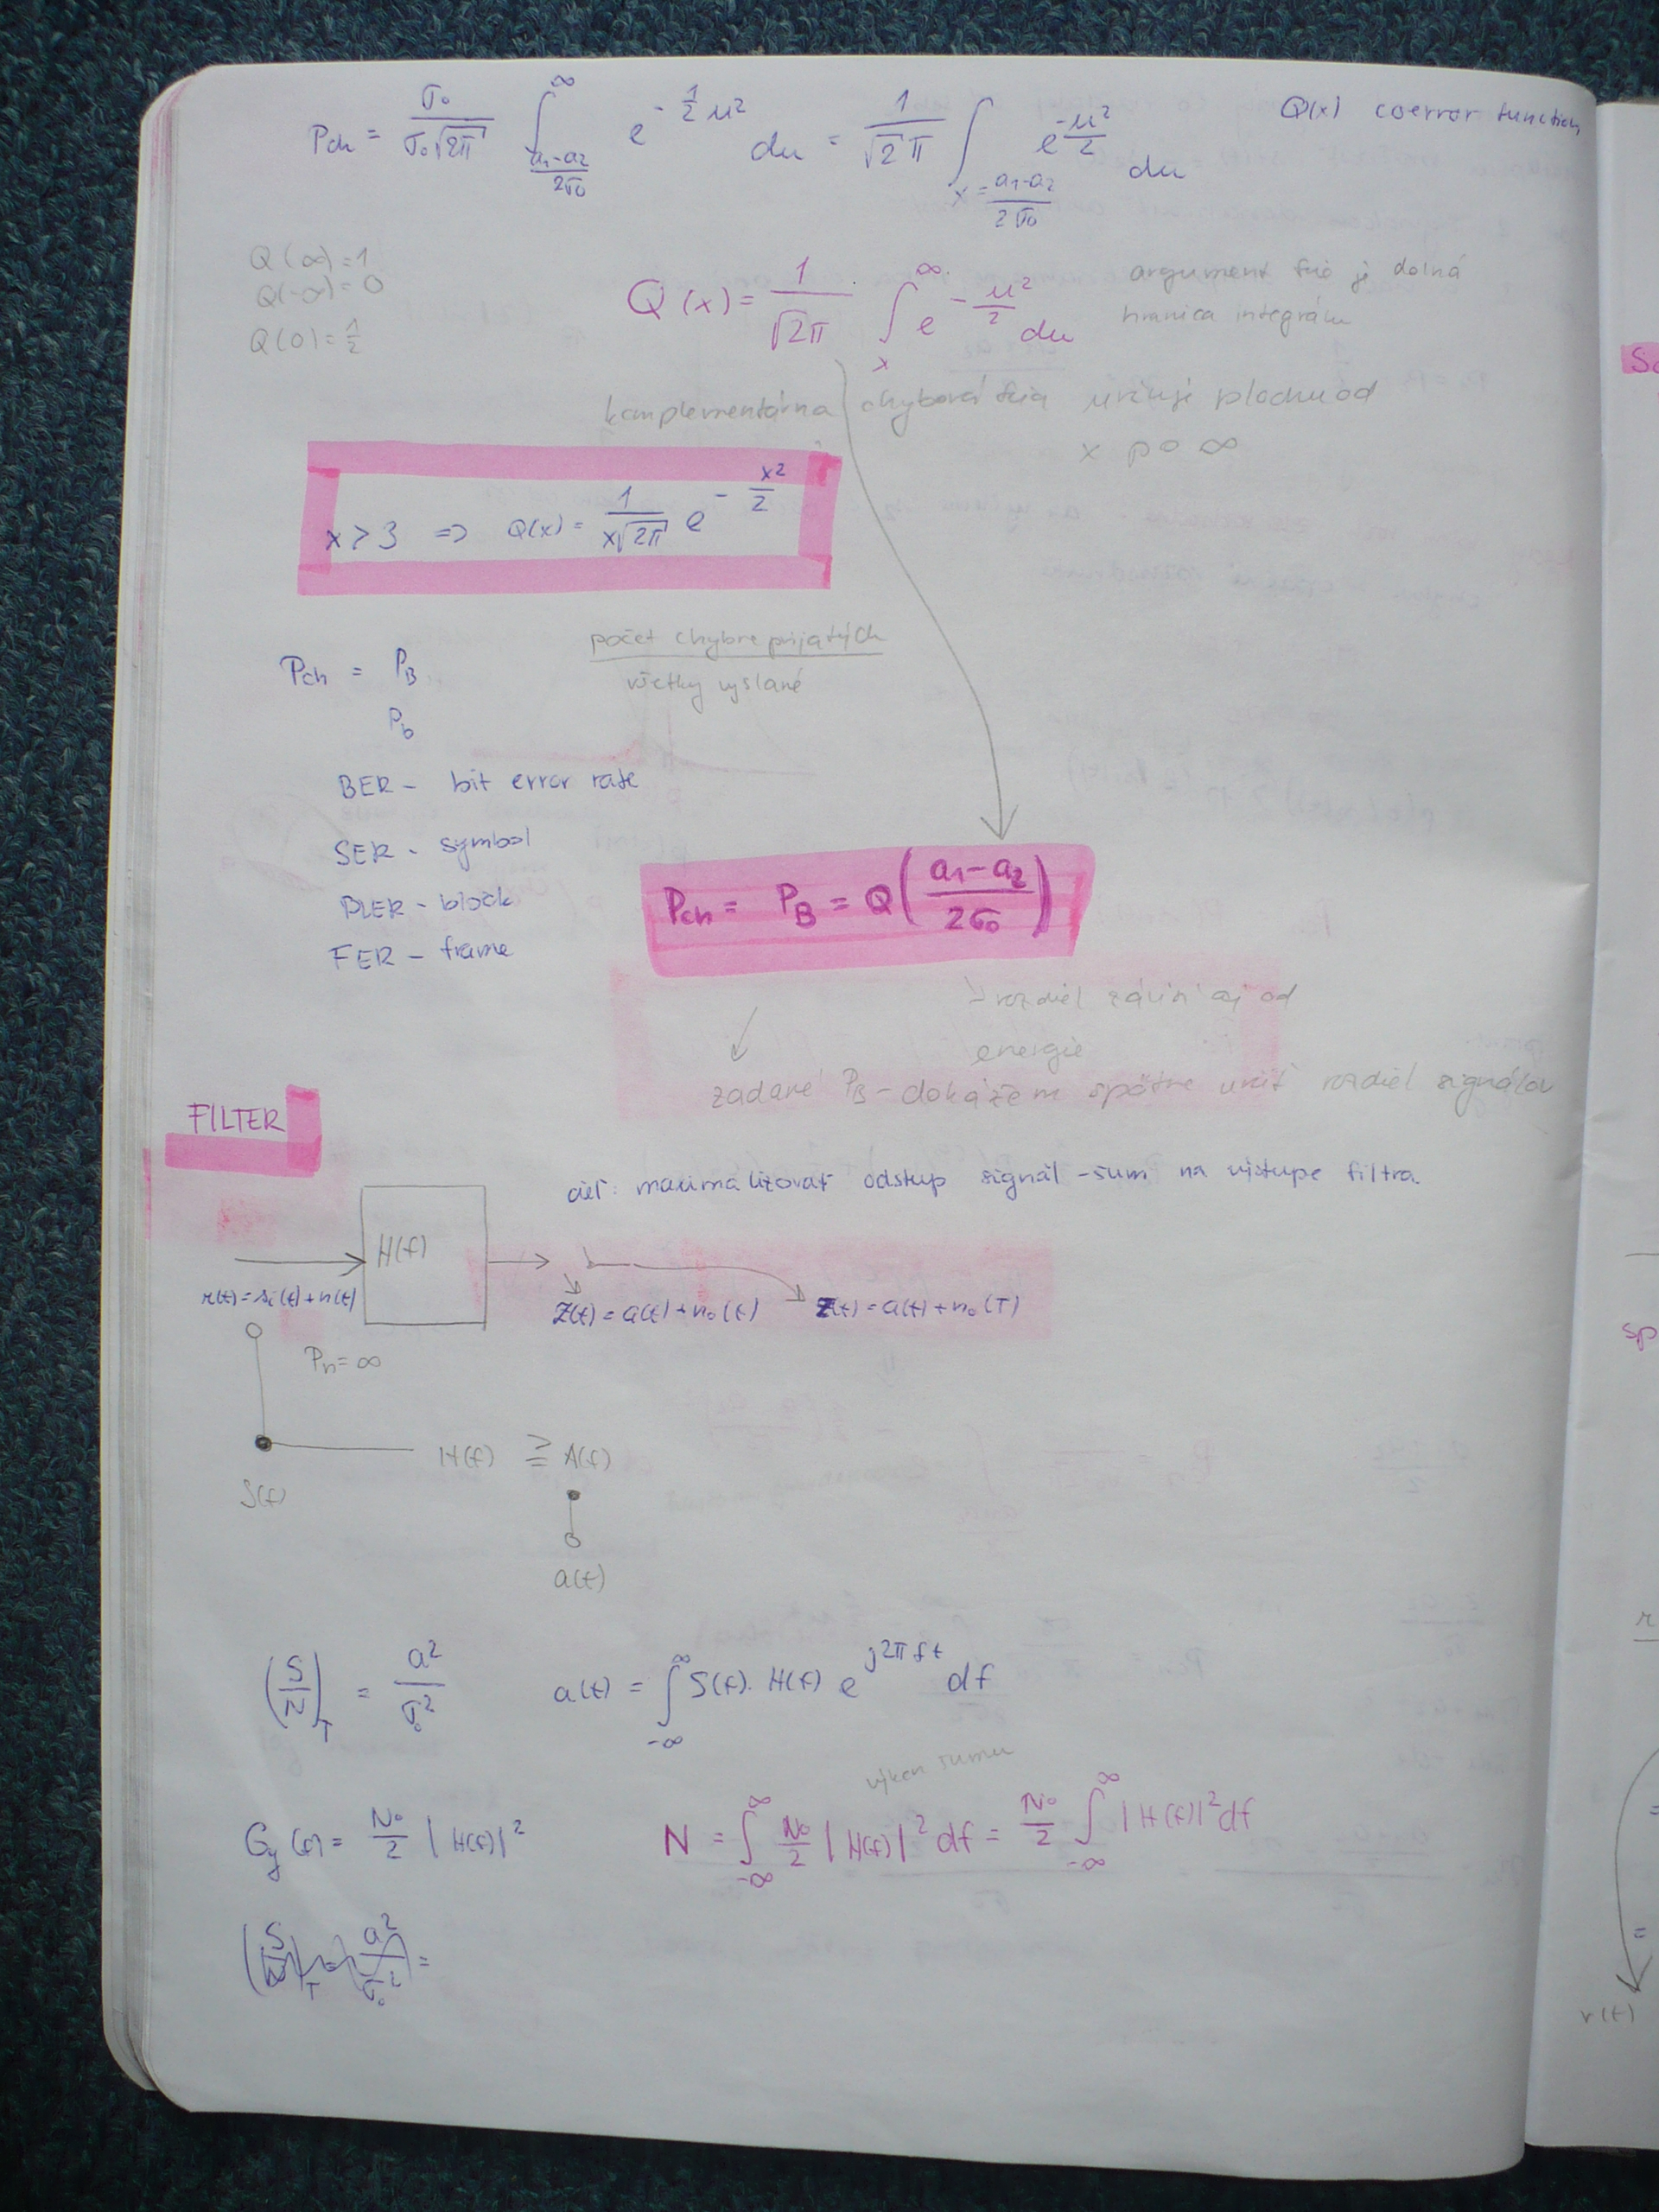 Pch = σ₀/(σ₀√2π) ∫_{(a₁-a₂)/(2σ₀)}^∞ e^{-½u²} du = 1/(√2π) ∫_{x = (a₁-a₂)/(2σ₀)} e^{-u²/2} du
Q(x) coerror function
Q(∞)=1
Q(-∞)=0
Q(0)=½
Q(x) = 1/(√2π) ∫_x^∞ e^{-u²/2} du
argument fcie je dolná
hranica integrálu
komplementárna chybová fcia určuje plochu od
x po ∞
x ≥ 3 ⇒ Q(x) = 1/(x√2π) e^{-x²/2}
Pch = P_B
P_b
počet chybne prijatých
všetky vyslané
BER - bit error rate
SER - symbol
BLER - block
FER - frame
Pch = P_B = Q((a₁-a₂)/(2σ₀))
rozdiel závisí aj od
energie
zadané P_B - dokážem spätne určiť rozdiel signálov
FILTER
cieľ: maximalizovať odstup signál - šum na výstupe filtra.
H(f)
r(t) = si(t) + n(t)
z(t) = a(t) + n₀(t)
z(t) = a(t) + n₀(T)
Pn = ∞
S(f)
H(f) ≥ A(f)
a(t)
(S/N)_T = a²/σ₀²
a(t) = ∫_{-∞}^∞ S(f). H(f) e^{j2πft} df
výkon šumu
Gy(f) = N₀/2 |H(f)|²
N = ∫_{-∞}^∞ N₀/2 |H(f)|² df = N₀/2 ∫_{-∞}^∞ |H(f)|² df
(S/N)_T = (a²/σ₀²) =
sp
r(t)